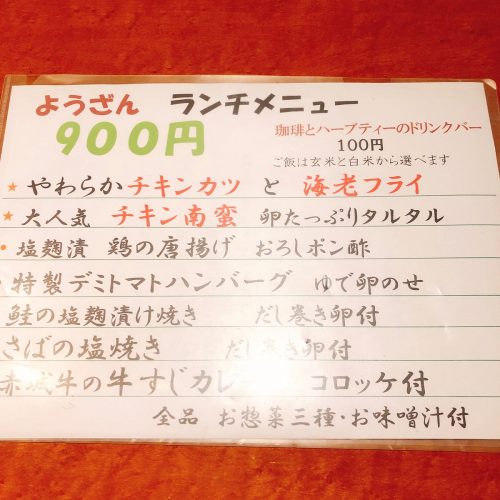 ようざん ランチメニュー
900円
珈琲とハーブティーのドリンクバー
100円
ご飯は玄米と白米から選べます
★やわらかチキンカツ と 海老フライ
★大人気 チキン南蛮 卵たっぷりタルタル
・塩麹漬 鶏の唐揚げ おろしポン酢
・特製デミトマトハンバーグ ゆで卵のせ
鮭の塩麹漬け焼き だし巻き卵付
さばの塩焼き だし巻き卵付
赤城牛の牛すじカレー コロッケ付
全品 お惣菜三種・お味噌汁付